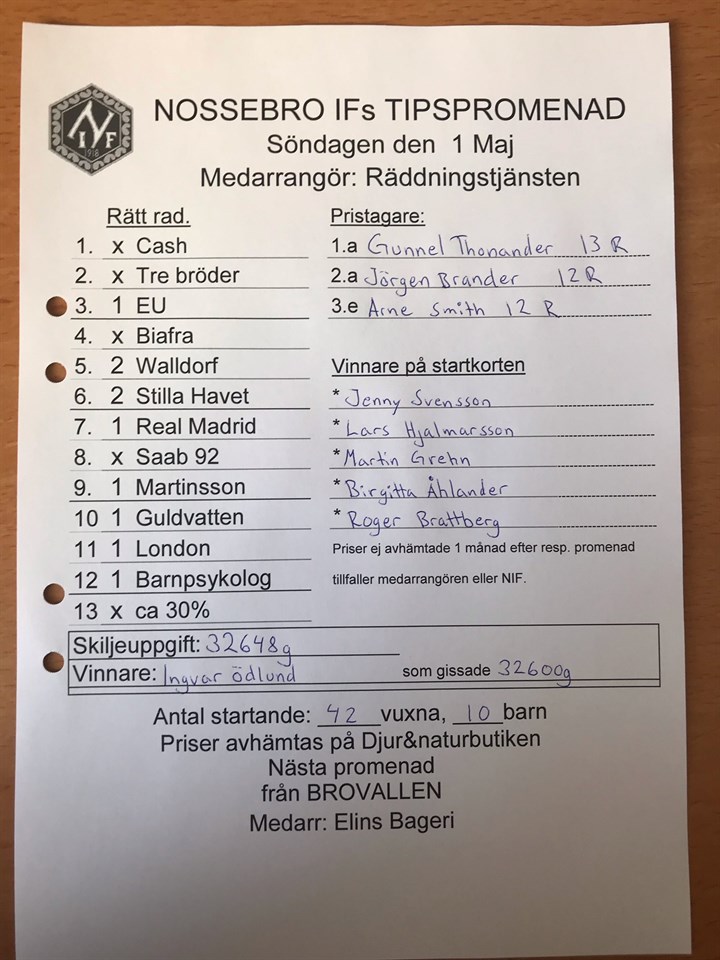 NIF
1918
NOSSEBRO IFs TIPSPROMENAD
Söndagen den 1 Maj
Medarrangör: Räddningstjänsten
Rätt rad.
1. x Cash
2. x Tre bröder
3. 1 EU
4. x Biafra
5. 2 Walldorf
6. 2 Stilla Havet
7. 1 Real Madrid
8. x Saab 92
9. 1 Martinsson
10 1 Guldvatten
11 1 London
12 1 Barnpsykolog
13 x ca 30%
Pristagare:
1.a Gunnel Thonander 13 R
2.a Jörgen Brander 12 R
3.e Arne Smith 12 R
Vinnare på startkorten
* Jenny Svensson
* Lars Hjalmarsson
* Martin Grehn
* Birgitta Åhlander
* Roger Brattberg
Priser ej avhämtade 1 månad efter resp. promenad
tillfaller medarrangören eller NIF.
Skiljeuppgift: 32648g
Vinnare: Ingvar Ödlund som gissade 32600g
Antal startande: 42 vuxna, 10 barn
Priser avhämtas på Djur&naturbutiken
Nästa promenad
från BROVALLEN
Medarr: Elins Bageri